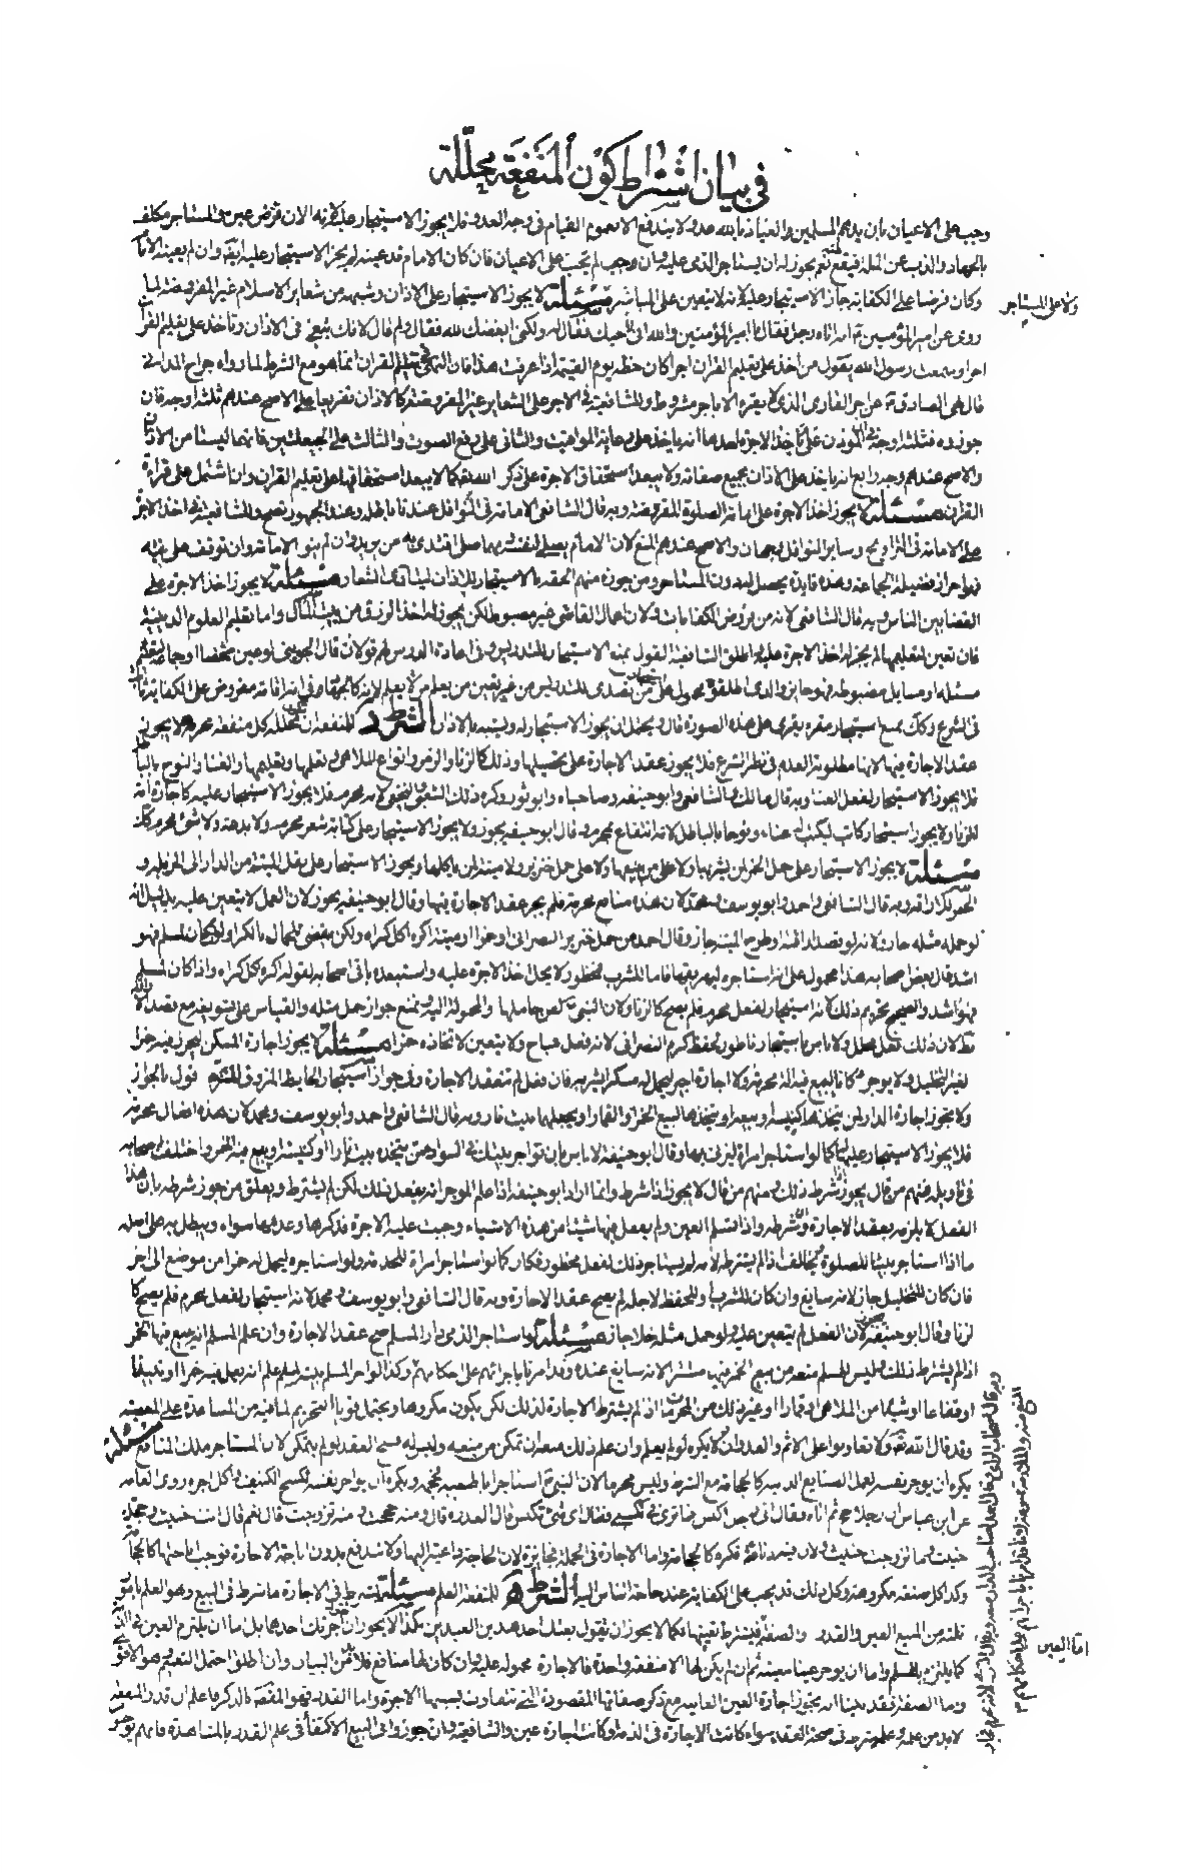 في بيان اشتراط كون المنفعة محللة
وجب على الاعيان بان يدهم المسلمين والعياذ بالله عدو لا يندفع الا بعموم القيام في وجه العدو فلا يجوز الاستيجار عليه لانه الان فرض عين على المستاجر مكلف
بالجهاد والذب عن الملة فيقع عنه نعم يجوز له ان يستاجر الذمي عليه وان وجب لم تجب على الاعيان فان كان الامام قد عينه لم يجز الاستيجار عليه ايضا وان لم يعينه الامام
وكان فرضا على الكفاية جاز الاستيجار عليه لانه لا يتعين على المباشر مسئلة لا يجوز الاستيجار على الاذان وشبهه من شعاير الاسلام غير المفروضة لما
روى عن امير المؤمنين انه اتاه رجل فقال يا امير المؤمنين والله اني احبك لله فقال له ولكني ابغضك لله فقال ولم قال لانك تبغي في الاذان وتاخذ على تعليم القران
اجرا وسمعت رسول الله يقول من اخذ على تعليم القران اجرا كان حظه يوم القيمة اذا عرفت هذا فان النهي في تعليم القران انما هو مع الشرط لما رواه جراح المدايني
قال نهى الصادق عن اجر القاري الذي لا يقرء الا باجر مشروط وللشافعية في الاجر على الشعاير غير المفروضة كالاذان تفريعا على الاصح عندهم ثلثة اوجه فان
جوزوه فثلثة اوجه في ان المؤذن على م ياخذ الاجرة احدها انه ياخذ على رعاية المواقيت والثاني على رفع الصوت والثالث على الحيعلتين فانهما ليستا من الاذكار
والاصح عندهم وجه رابع انه ياخذ على الاذان بجميع صفاته ولا يبعد استحقاق الاجرة على ذكر الله تعالى كما لا يبعد استحقاقها على تعليم القران وان اشتمل على قراءة
القران مسئلة لا يجوز اخذ الاجرة على امامة الصلوة المفروضة وبه قال الشافعي اما امامة في النوافل عندنا باطلة وعند الجمهور تصح وللشافعية في اخذ الاجرة
على الامامة في التراويح وساير النوافل وجهان والاصح عندهم المنع لان الامام يصلي لنفسه مهما صلى اقتدى به من يريد وان لم ينو الامامة وان توقف على نيته
فهو احراز فضيلة الجماعة وهذه فايدة يحصل له دون المستاجر ومن جوزه منهم الحقه بالاستيجار للاذان ليتادى الشعار مسئلة لا يجوز اخذ الاجرة على
القضا بين الناس وبه قال الشافعي لانه من فروض الكفايات ولان اعمال القاضي غير مضبوطة لكن يجوز له اخذ الرزق من بيت المال واما تعليم العلوم الدينية
فان تعين لتعليمها لم يجز له اخذ الاجرة عليه واطلق الشافعية القول بمنع الاستيجار للتدريس وفي اعادة الدروس لهم قولان قال الجويني لو عين شخصا او جماعة ليعلمهم
مسئله او مسايل مضبوطه فهو جايز والذي اطلقوه محمول على من تصدى للتدريس من غير تعيين من يعلمه وما يعلم لانه كالجهاد في انه اقامة مفروض على الكفاية ثابتا
في الشرع وكذلك يمنع استيجار مقرء يقرى على هذه الصورة قال ويحتمل ان يجوز الاستيجار له وشبهه بالاذان الشرط د للمنفعة ان تكون محللة كل منفعة محرمة لا يجوز
عقد الاجارة فيها لانها مطلوبة العدم في نظر الشرع فلا يجوز عقد الاجارة على تحصيلها وذلك كالزنا والزمر وانواع الملاهي وتعلمها وتعليمها والغنا والنوح بالباطل
فلا يجوز الاستيجار لفعل الغنا وبه قال مالك والشافعي وابو حنيفه وصاحباه وابو ثور وكره ذلك الشعبي والنخعي لانه محرمه فلا يجوز الاستيجار عليه كاجارة امة
للزنا ولا يجوز استيجار كاتب ليكتب له غناء ونوحا بالباطل لانه انتفاع محرم وقال ابو حنيفه يجوز ولا يجوز الاستيجار على كتابة شعر محرم ولا بدعة ولا شئ محرم كذلك
مسئلة لا يجوز الاستيجار على حمل الخمر لمن يشربها ولا على من يبيعها ولا على حمل خنزير ولا ميتة لمن ياكلها ويجوز الاستيجار على نقل الميتة من الدار الى المزبلة و
الخمر لاراقه وبه قال الشافعي واحمد وابو يوسف ومحمد لان هذه منافع محرمة فلم يجز عقد الاجارة فيها وقال ابو حنيفه يجوز لان العمل لا يتعين عليه بدليل انه
لو حمله مثله جاز لانه لو قصد اراقته او طرح الميتة جاز وقال احمد من حمل خنزيرا لنصراني او خمرا او ميتة اكره اكل كراه ولكن يقضى للحمال بالكراء ولو كان لمسلم فهو
اشد قال بعض اصحابه هذا محمول على انه استاجره ليهريقها فاما للشرب فمحظور لا يحل اخذ الاجرة عليه واستبعده باقي اصحابه لقوله اكره كل كراه واذا كان لمسلم
فهو اشد والصحيح تحريم ذلك لانه استيجار لفعل محرم فلم يصح كالزنا ولان النبي لعن حاملها والمحمولة اليه ونمنع جواز حمل مثله والقياس على تسويغه مع قصد الاراقة
خطا لان ذلك فعل محلل ولا باس باستيجار ناطور لحفظ كرم النصراني لانه فعل مباح ولا يتعين لاتخاذه خمرا مسئلة لا يجوز اجارة المسكن ليحرز فيه خمرا
لغير التخليل ولا يوجره كالبيع فيه آلة محرمة ولا اجارة اجير ليحمل له مسكرا يشربه فان فعل لم تنعقد الاجارة وفي جواز استيجار الحايط المزوق للتنزه قول بالجواز
ولا يجوز اجارة الدار لمن يتخذها كنيسة او بيعه او يتخذها لبيع الخمر او القمار او يجعلها بيت نار وبه قال الشافعي واحمد وابو يوسف ومحمد لان هذه افعال محرمة
فلا يجوز الاستيجار عليها كما لو استاجر امراة ليزني بها وقال ابو حنيفة لا باس بان تواجر بيتك في السواد ممن يتخذه بيت نار او كنيسة او يبيع فيه الخمر واختلف اصحابه
في تاويله فمنهم من قال يجوز اذا شرط ذلك ومنهم من قال لا يجوز اذا شرط وانما اراد ابو حنيفه اذا علم الموجر انه يفعل ذلك لكن لم يشترط ويعلق من جوز شرطه بان هذا
الفعل لا يلزمه بعقد الاجارة وان شرطه واذا تسلم العين ولم يفعل فيها شيئا من هذه الاشياء وجبت عليه الاجرة فذكرها وعدمها سواء ويبطل به على اصله
ما اذا استاجر بيتا للصلوة يخالف اذا لم يشترط لانه لم يستاجر ذلك لفعل محظور فكان كما لو استاجر امراة للخدمة ولو استاجره ليحمل له خمرا من موضع الى اخر
فان كان للتخليل جاز لانه سايغ وان كان للشرب او للحفظ لاجله لم يصح عقد الاجارة وبه قال الشافعي وابو يوسف ومحمد لانه استيجار لفعل محرم فلم يصح كا
لزنا وقال ابو حنيفة لان الفعل لم يتعين عليه ولو حمل مثله خلا جاز مسئلة لو استاجر الذمي دار المسلم صح عقد الاجارة وان علم المسلم انه يبيع فيها الخمر
اذا لم يشترط ذلك وليس للمسلم منعه من بيع الخمر فيها مستترا لانه سايغ عنده وقد امرنا باجرائهم على احكامهم وكذا لو اجر المسلم بيته لمسلم علم انه يعمل فيه خمرا او نبيذا
او فقاعا او شيئا من الملاهي او قمارا او غير ذلك من المحرمات اذا لم يشترط الاجارة لذلك لكن يكون مكروها ويحتمل قويا التحريم لما فيه من المساعدة على المعصية
وقد قال الله تعالى ولا تعاونوا على الاثم والعدوان ولا يكره لو لم يعلم وان علم ذلك منعه ان تمكن من منعه وليس له فسخ العقد لو لم يتمكن لان المستاجر ملك المنافع مسئلة
يكره ان يوجر نفسه لعمل الصنايع الدنية كالحجامة مع الشرط وليس محرما لان النبي استاجر ابا طيبة فحجمه ويكره ان يواجر نفسه لكسح الكنيف واكل اجره روى العامه
عن ابن عباس ان رجلا حج ثم اتاه فقال اني رجل اكنس فما ترى في مكسبي فقال اي شئ تكنس قال العذره قال ومنه حججت ومنه تزوجت قال نعم قال انت خبيث وحجك
خبيث وما تزوجت خبيث ولان فيه دناءة فكره كالحجامة واما الاجارة في الجملة فجايزة لان الحاجة داعية اليها ولا تندفع بدون اباحة الاجارة فوجب اباحتها كالحجامة
وكذا كل صنعة مكروهة وكل ذلك قد يجب على الكفاية عند حاجة الناس اليه الشرط ه للمنفعة العلم مسئلة يشترط في الاجارة ما شرط في البيع وهو العلم بامور
ثلثة من المبيع العين والقدر والصفة فيشترط تعيينها فكما لا يجوز ان يقول بعتك احد هذين العبدين كذا لا يجوز ان يقول اجرتك احدهما بل اما ان يلتزم العين في الذمة
كما يلتزم بالسلم واما ان يوجر عينا معينة ثم ان لم يكن لها الا منفعة واحدة فالاجارة محمولة عليه وان كان لها منافع فلابد من البيان وان اطلق احتمل التعميم وهو الاقوى
وما الصفة فقد بينا انه يجوز اجارة العين الغايبه مع ذكر صفاتها المقصودة التي تتفاوت بسببها الاجرة واما القدر فهو المقصد بالذكر فاعلم ان قدر المنفعة
لابد من علمه وعلم شرط في صحة العقد سواء كانت الاجارة في الذمة او كانت اجارة عين والشافعية وان جوزوا في البيع الاكتفاء في علم القدر بالمشاهدة فانهم يوجبون
ولا على المستاجر
اما العين